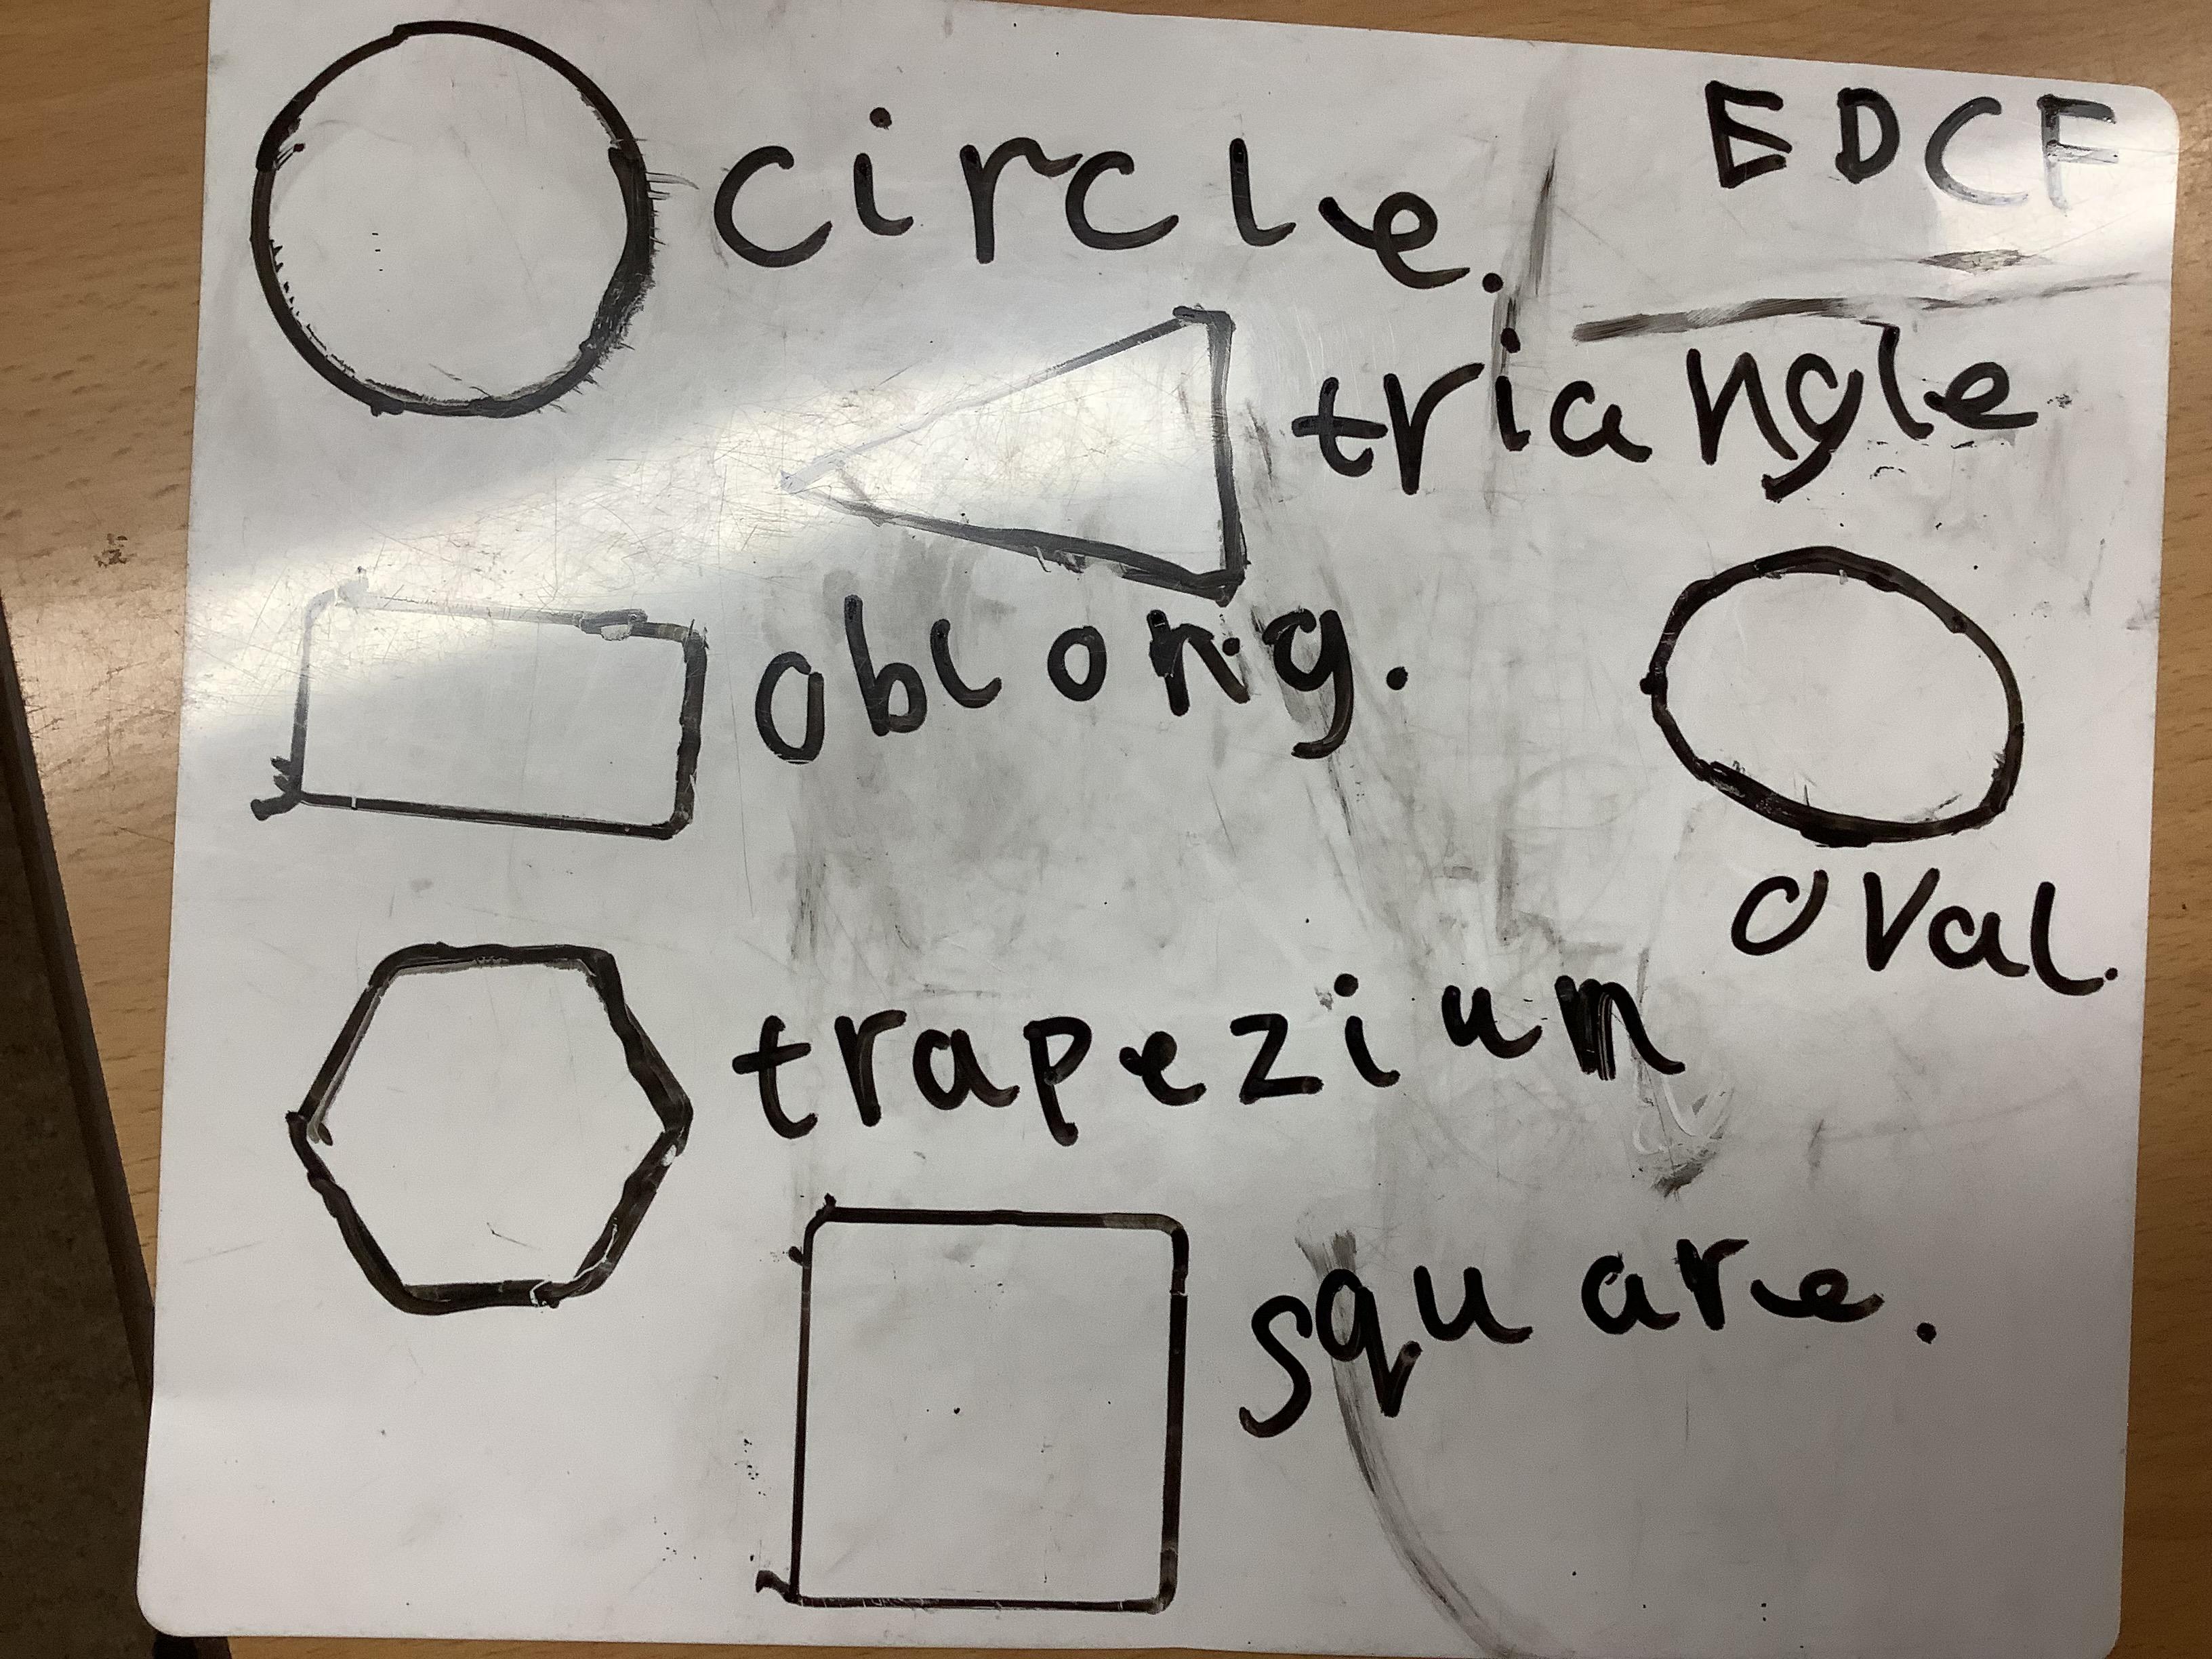 EDCF
circle.
triangle
oblong.
oval.
trapezium
square.